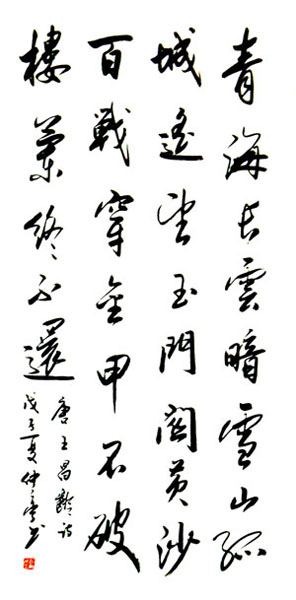 青海長雲暗雪山孤
城遙望玉門關黄沙
百戰穿金甲不破
樓蘭終不還
唐王昌齡詩
戊子夏仲书